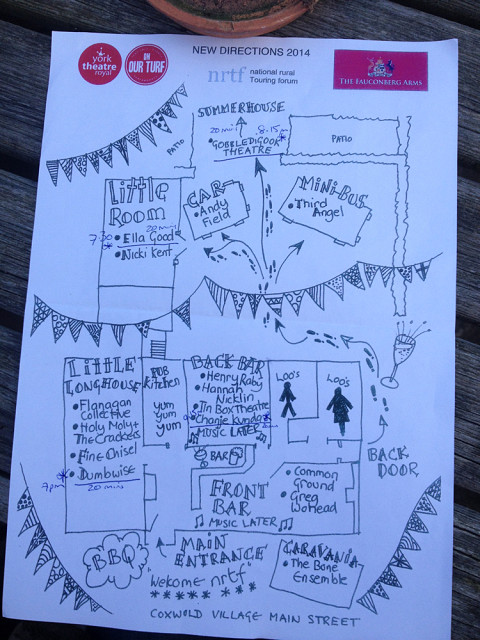 york
theatre
royal
ON
OUR TURF
NEW DIRECTIONS 2014
nrtf national rural
Touring forum
THE FAUCONBERG ARMS
SUMMERHOUSE
20 min 8.15
• GOBBLEDIGOOK
THEATRE
PATIO
PATIO
Little
Room
20 min
7.30
• Ella Good
• Nicki Kent
CAR
• Andy
Field
Mini-Bus
• Third
Angel
Little
Longhouse
• Flanagan
Collective
• Holy Moly +
The Crackers
• Fine Chisel
• Dumbwise
7pm
20 mins
PUB
Kitchen
yum
yum
yum
BACK BAR
• Henry Raby
• Hannah
Nicklin
• Tin Box Theatre
• Chanje Kunda
MUSIC LATER
LOO'S
LOO'S
BAR
BACK
DOOR
FRONT
BAR
MUSIC LATER
• Common
Ground
• Greg
Wohead
BBQ
MAIN
ENTRANCE
"Welcome nrtf"
CARAVANIA
• The Bone
Ensemble
COXWOLD VILLAGE MAIN STREET